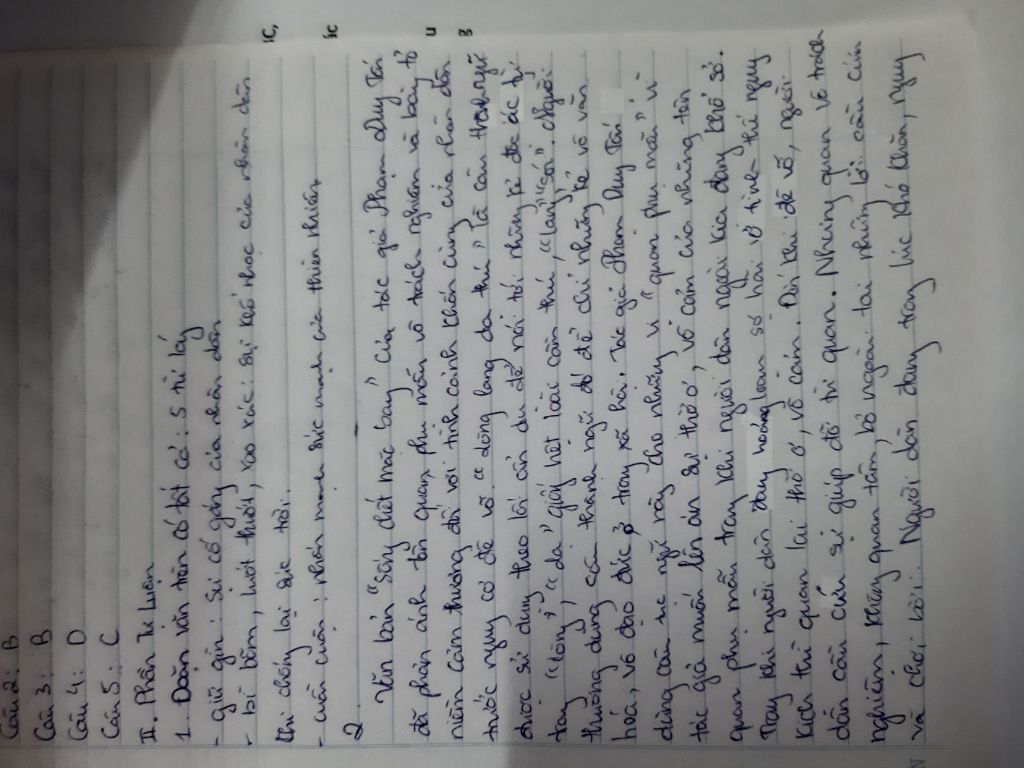 Câu 2: B
Câu 3: B
Câu 4: D
Câu 5: C
II. Phần Tự Luận
1. Đoạn văn trên có tất cả: 5 từ láy
- giữ gìn: Sự cố gắng của nhân dân
- bì bõm, lướt thướt, xao xác: sự khó nhọc của nhân dân
khi chống lại sức trời.
- cuồn cuộn: nhấn mạnh sức mạnh của thiên nhiên
2.
Văn bản "Sống chết mặc bay" của tác giả Phạm Duy Tốn
đã phản ánh tên quan phụ mẫu vô trách nghiệm và bày tỏ
niềm cảm thương đối với tình cảnh khốn cùng của nhân dân
trước nguy cơ đê vỡ. "Lòng lang dạ thú" là câu thành ngữ
được sử dụng theo lối ẩn dụ để nói tới những kẻ độc ác bởi
trong "lòng", "dạ" giống hệt loài cầm thú, "lang" "sói". Người
thường dùng câu thành ngữ đó để chỉ những kẻ vô văn
hóa, vô đạo đức ở trong xã hội. Tác giả Phạm Duy Tốn
dùng câu tục ngữ này cho những vị "quan phụ mẫu" vì
tác giả muốn lên án sự thờ ơ, vô cảm của những tên
quan phụ mẫu trong khi người dân ngoài kia đang khổ sở.
Trong khi người dân đang hoảng loạn, sợ hãi vì tình thế nguy
kịch thì quan lại thờ ơ, vô cảm. Đến khi đê vỡ, người
dân cần cứu sự giúp đỡ từ quan. Nhưng quan vô trách
nghiệm, không quan tâm, bỏ ngoài tai những lời cầu cứu
và chơi bời. Người dân đang trong lúc khó khăn, nguy
ic,
ic
u